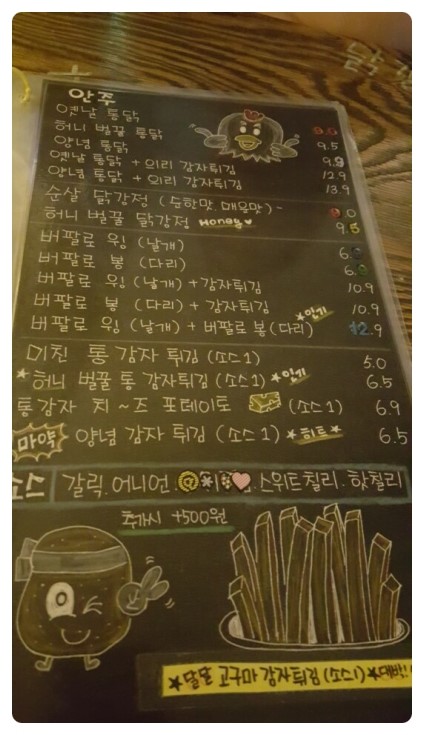 안주
옛날 통닭 9.0
허니 벌꿀 통닭 9.5
양념 통닭 9.9
옛날 통닭 + 의리 감자튀김 12.9
양념 통닭 + 의리 감자튀김 13.9
순살 닭강정 (순한맛, 매운맛) - 9.0
허니 벌꿀 닭강정 Honey 9.5
버팔로 윙 (날개) 6.
버팔로 봉 (다리) 6.
버팔로 윙 (날개) + 감자튀김 10.9
버팔로 봉 (다리) + 감자튀김 ★인기 10.9
버팔로 윙 (날개) + 버팔로 봉 (다리) 12.9
미친 통 감자 튀김 (소스1) 5.0
★허니 벌꿀 통 감자튀김 (소스1) ★인기 6.5
통감자 치~즈 포테이토 (소스1) 6.9
마약 양념 감자 튀김 (소스1) ★히트★ 6.5
소스 갈릭. 어니언. 스위트칠리. 핫칠리
추가시 +500원
★달달 고구마 감자튀김 (소스1)★대박!